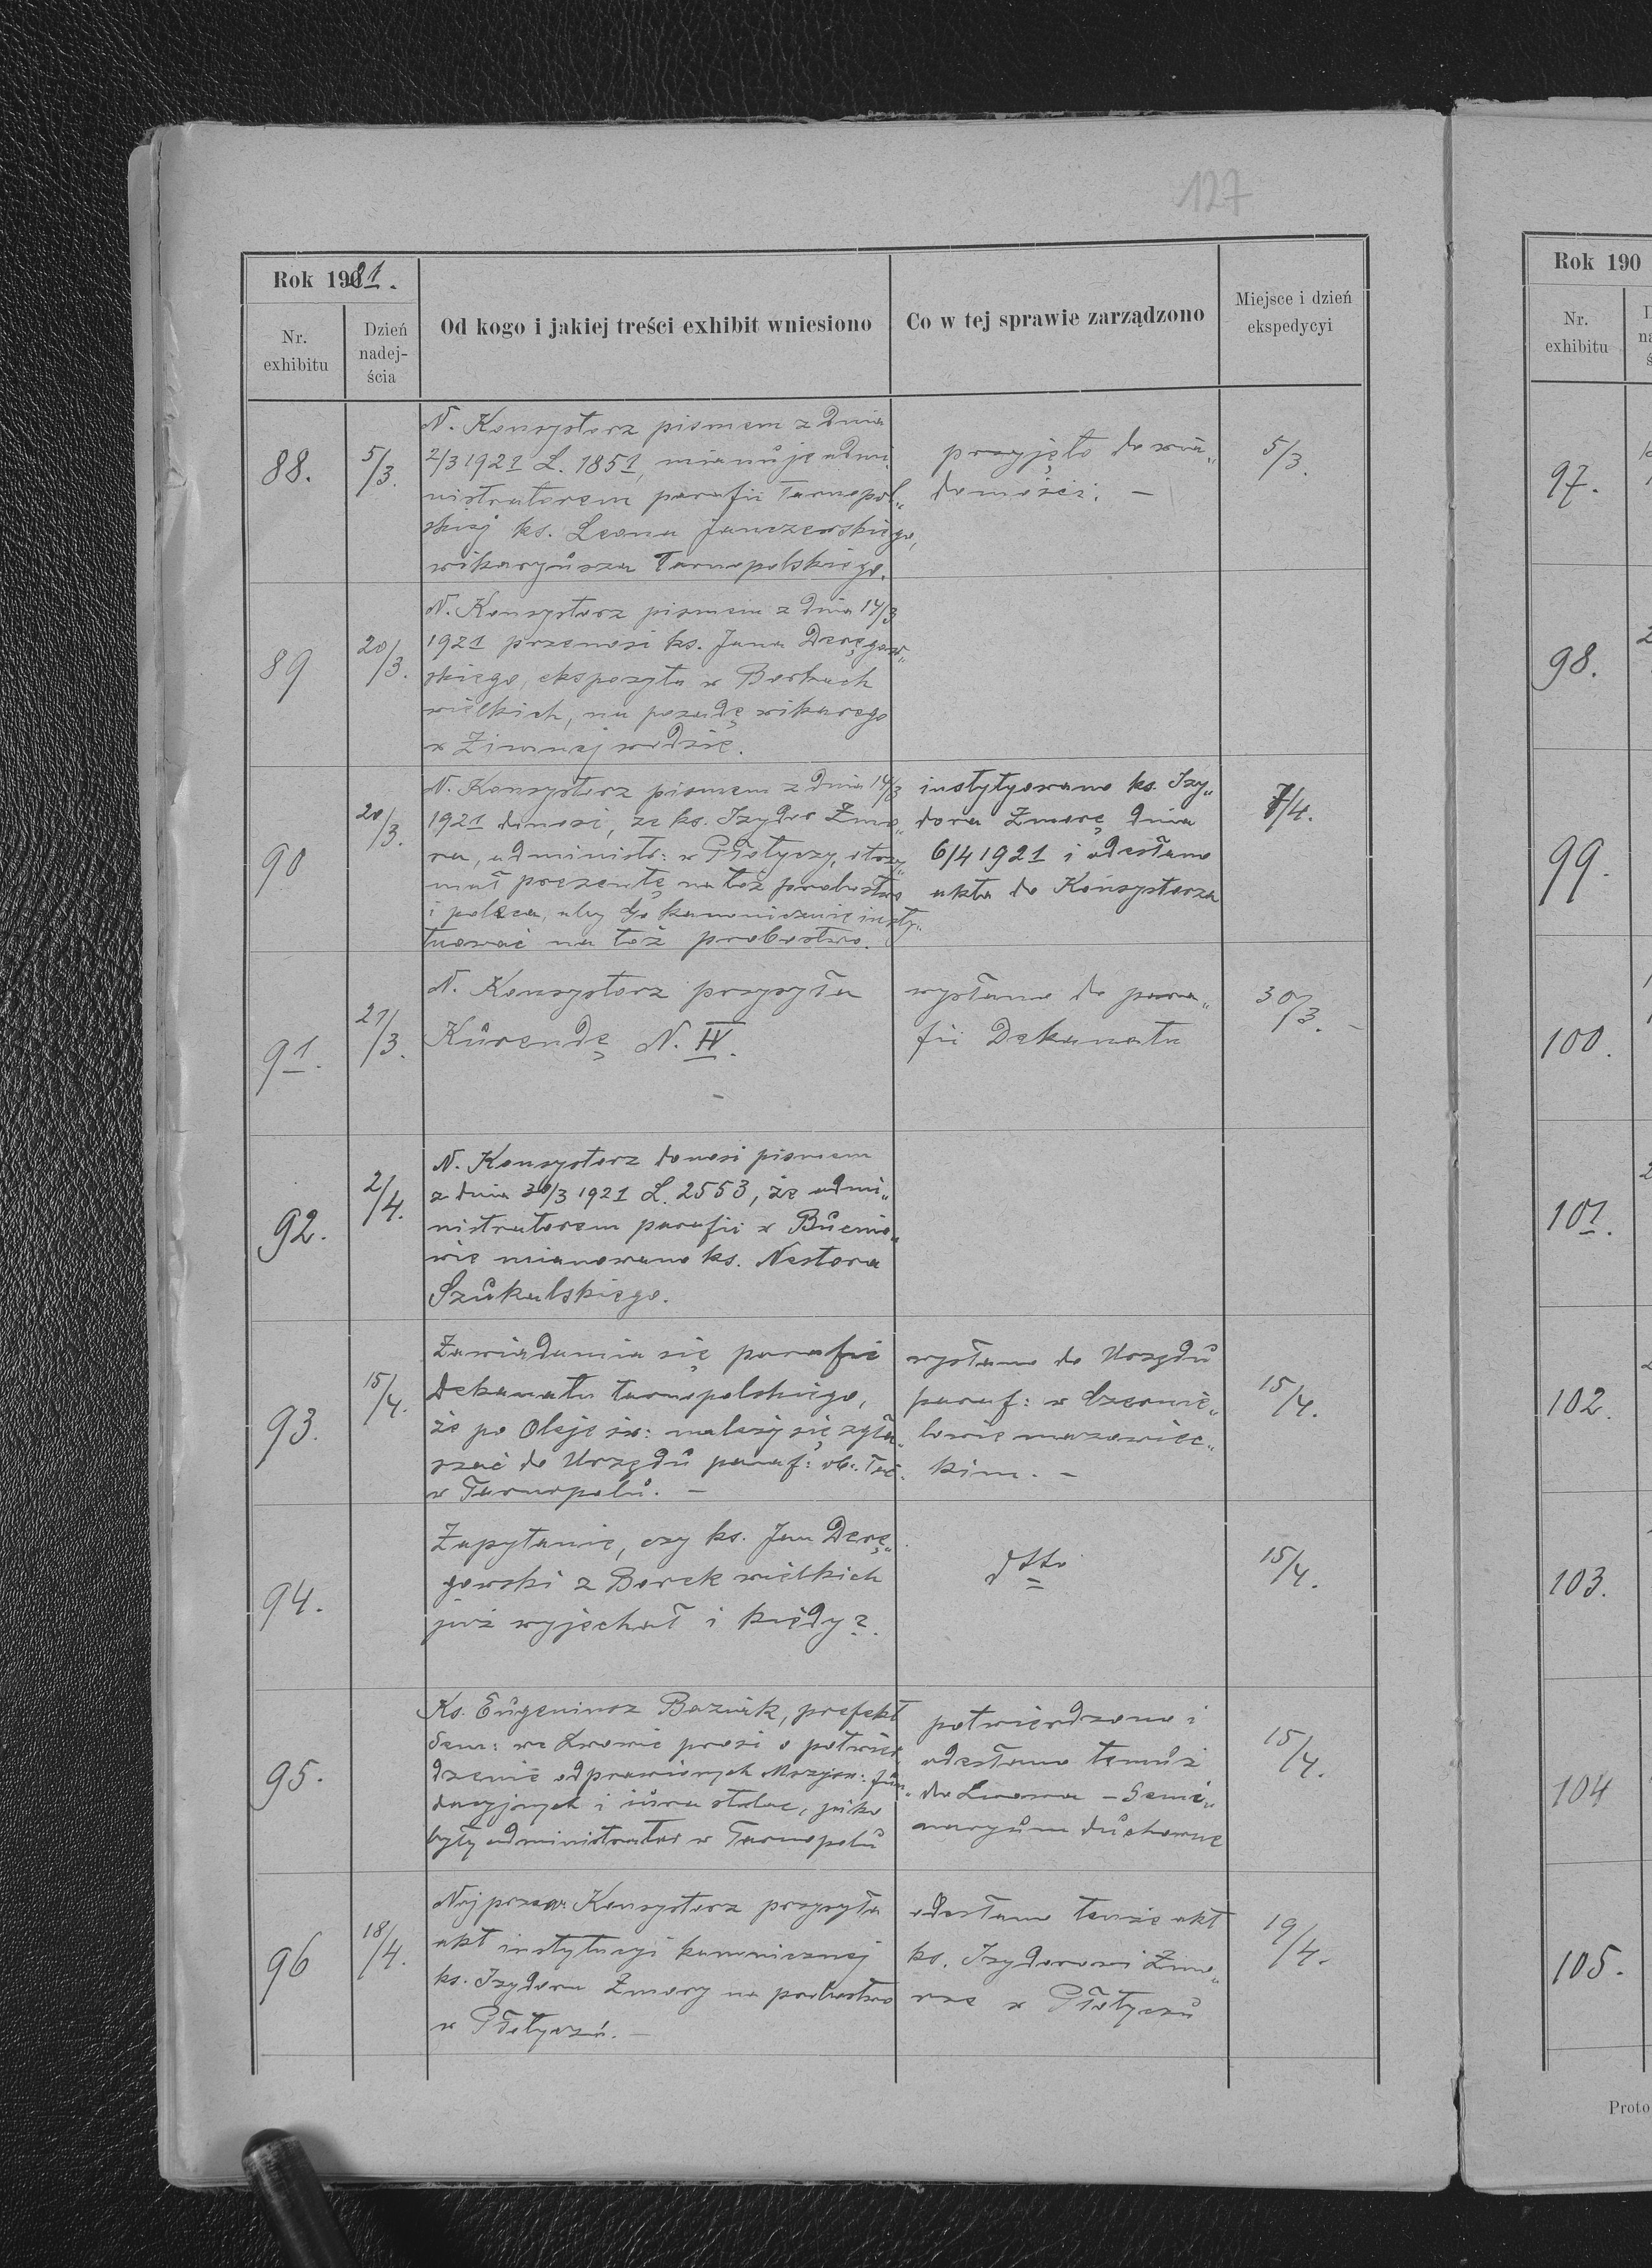 127
Rok 1921.
Nr. exhibitu
Dzień nadej-ścia
Od kogo i jakiej treści exhibit wniesiono
Co w tej sprawie zarządzono
Miejsce i dzień ekspedycyi
88.
5/3.
N. Konsystorz pismem z dnia
2/3 1921 L. 1851, mianuje admi„
nistratorem parafii Tarnopol„
skiej ks. Leona Janczewskiego,
wikaryusza Tarnopolskiego.
przyjęto do wia„
domości. —
5/3.
89
20/3.
N. Konsystorz pismem z dnia 14/3
1921 przenosi ks. Jana Deręgow„
skiego, ekspozyta w Borkach
wielkich, na posadę wikarego
w Zimnej wodzie.
90
20/3.
N. Konsystorz pismem z dnia 14/3
1921 donosi, że ks. Izydor Zmo„
ra, administr: w Płotyczy, otrzy„
mał prezentę na toż probostwo
i poleca, aby Go kanonicznie insty„
tuować na toż probostwo.
instytuowano ks. Izy„
dora Zmorę dnia
6/4 1921 i odesłano
akta do Konsystorza
7/4.
91.
21/3.
N. Konsystorz przysyła
Kurendę N. IV.
wysłano do para„
fii Dekanatu
30/3. —
92.
2/4.
N. Konsystorz donosi pismem
z dnia 30/3 1921 L. 2553, że admi„
nistratorem parafii w Bucnio„
wie mianowano ks. Nestora
Szukalskiego.
93.
15/4.
Zawiadamia się parafie
Dekanatu tarnopolskiego,
że po Oleje św: należy się zgła„
szać do Urzędu paraf: ob. łac.
w Tarnopolu. —
wysłano do Urzędu
paraf: w Czernie„
lowie mazowiec„
kim. —
15/4.
94.
Zapytanie, czy ks. Jan Derę„
gowski z Borek wielkich
już wyjechał i kiedy?
dtto
15/4.
95.
Ks. Eugeniusz Baziak, prefekt
Sem: we Lwowie prosi o potwier
dzenie odprawionych Mszy św: fun„
dacyjnych i iura stolae, jako
były administrator w Tarnopolu
potwierdzono i
odesłano temuż
do Lwowa — Semi„
naryum duchowne
15/4.
96
18/4.
Najprzew Konsystorz przysyła
akt instytucyi kanonicznej
ks. Izydora Zmory na probostwo
w Płotyczu. —
odesłano tenże akt
ks. Izydorowi Zmo„
rze w Płotyczu
19/4.
Rok 190
Nr. exhibitu
97.
98.
99.
100.
101.
102.
103.
104
105.
Proto